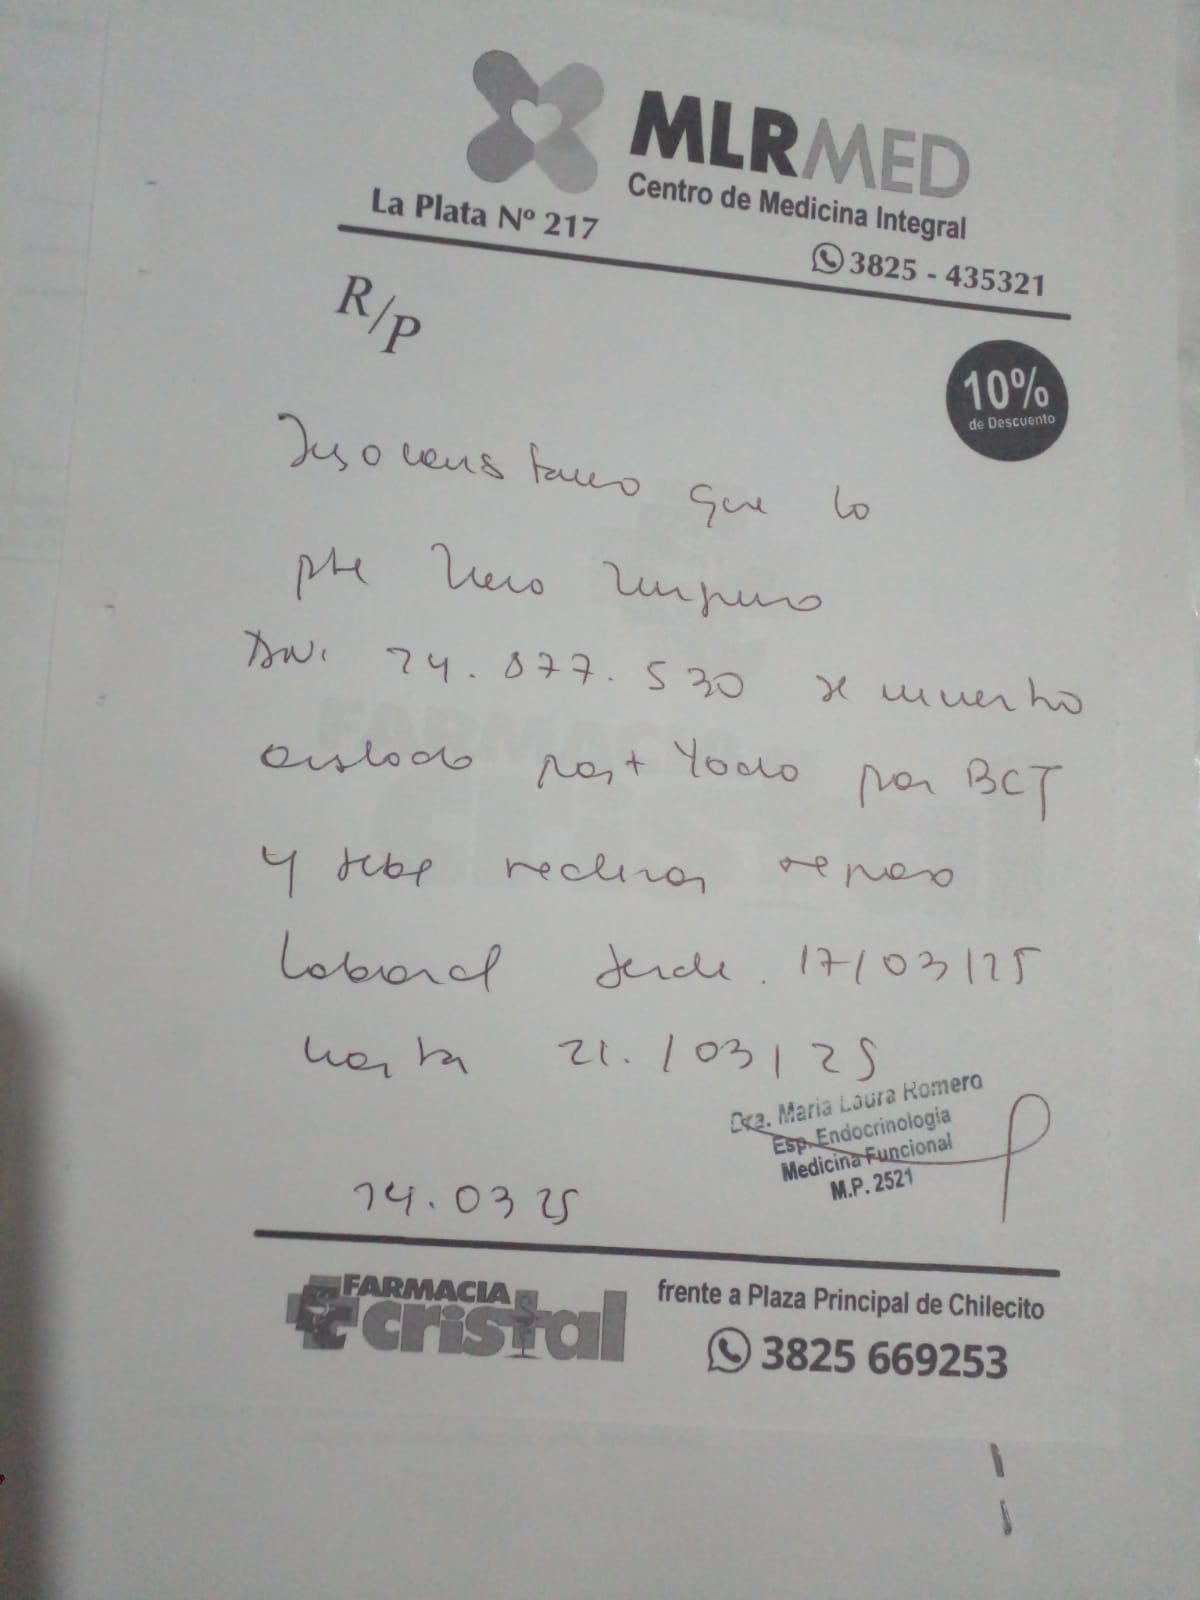 MLRMED
Centro de Medicina Integral
La Plata Nº 217
3825 - 435321
R/P
10%
de Descuento
Dejo constancia que la
pte
DNI 24.877.530 se encuentra
aislada post Yodo por BCT
y debe realizar reposo
laboral desde 17/03/25
hasta 21/03/25
Dra. Maria Laura Romero
Esp. Endocrinología
Medicina Funcional
M.P. 2521
14.03 25
FARMACIA
cristal
frente a Plaza Principal de Chilecito
3825 669253